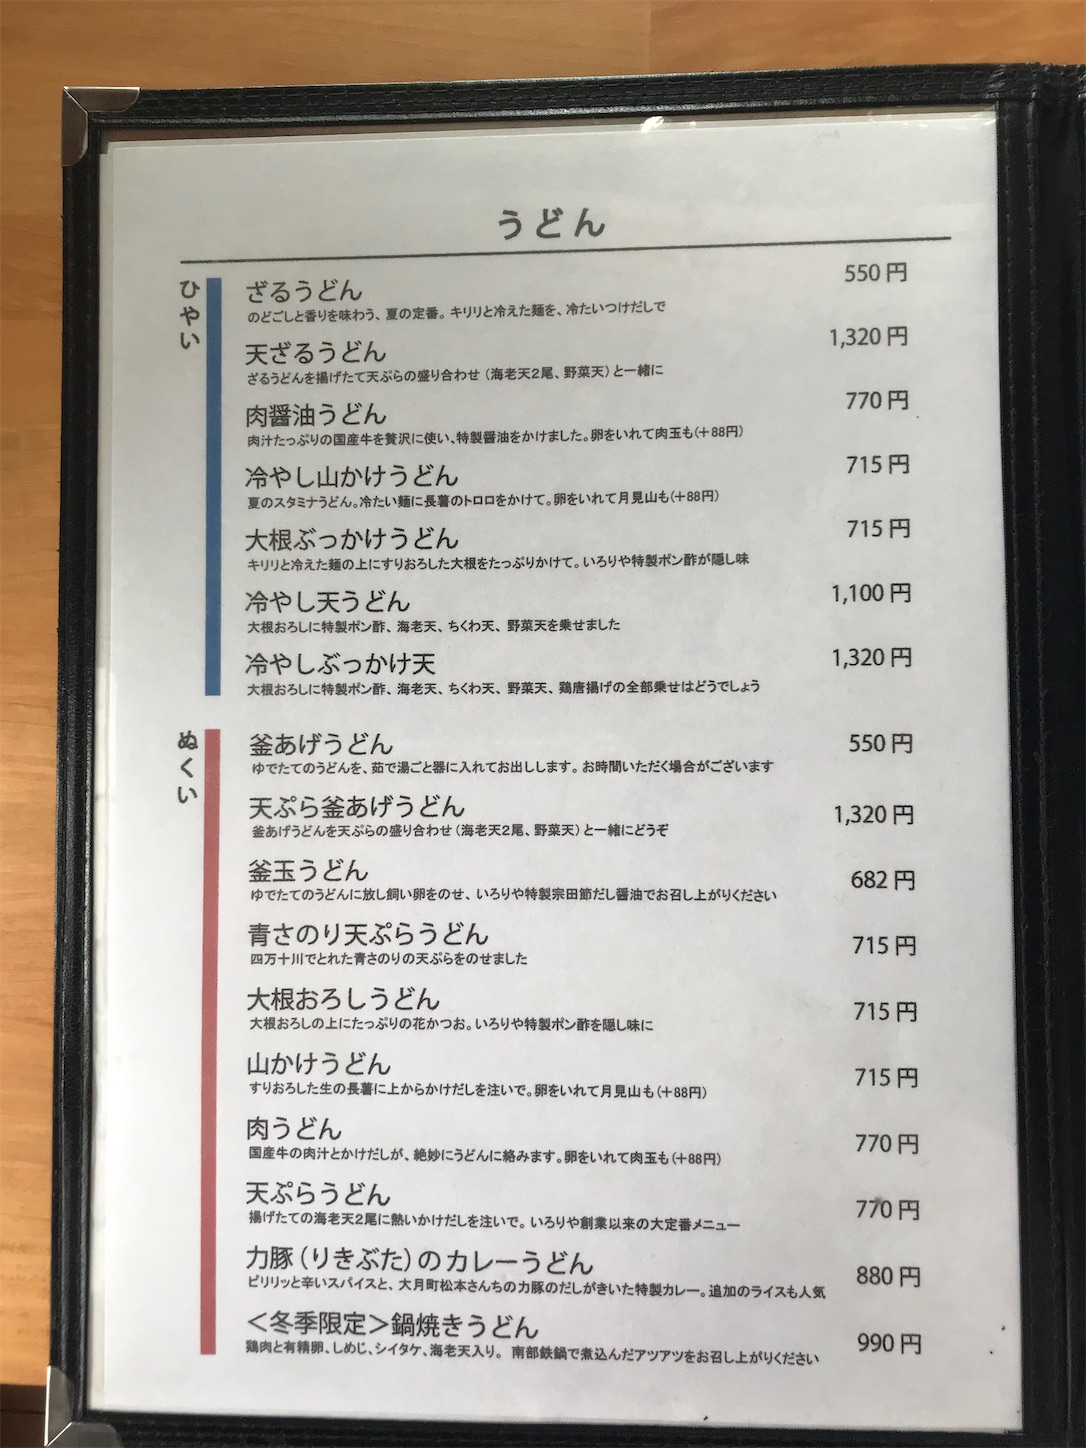 うどん
ひやい
ざるうどん 550円
のどごしと香りを味わう、夏の定番。キリリと冷えた麺を、冷たいつけだしで
天ざるうどん 1,320円
ざるうどんを揚げたて天ぷらの盛り合わせ（海老天2尾、野菜天）と一緒に
肉醤油うどん 770円
肉汁たっぷりの国産牛を贅沢に使い、特製醤油をかけました。卵をいれて肉玉も（+88円）
冷やし山かけうどん 715円
夏のスタミナうどん。冷たい麺に長薯のトロロをかけて。卵をいれて月見山も（+88円）
大根ぶっかけうどん 715円
キリリと冷えた麺の上にすりおろした大根をたっぷりかけて。いろりや特製ポン酢が隠し味
冷やし天うどん 1,100円
大根おろしに特製ポン酢、海老天、ちくわ天、野菜天を乗せました
冷やしぶっかけ天 1,320円
大根おろしに特製ポン酢、海老天、ちくわ天、野菜天、鶏唐揚げの全部乗せはどうでしょう
ぬくい
釜あげうどん 550円
ゆでたてのうどんを、茹で湯ごと器に入れてお出しします。お時間いただく場合がございます
天ぷら釜あげうどん 1,320円
釜あげうどんを天ぷらの盛り合わせ（海老天2尾、野菜天）と一緒にどうぞ
釜玉うどん 682円
ゆでたてのうどんに放し飼い卵をのせ、いろりや特製宗田節だし醤油でお召し上がりください
青さのり天ぷらうどん 715円
四万十川でとれた青さのりの天ぷらをのせました
大根おろしうどん 715円
大根おろしの上にたっぷりの花かつお。いろりや特製ポン酢を隠し味に
山かけうどん 715円
すりおろした生の長薯に上からかけだしを注いで。卵をいれて月見山も（+88円）
肉うどん 770円
国産牛の肉汁とかけだしが、絶妙にうどんに絡みます。卵をいれて肉玉も（+88円）
天ぷらうどん 770円
揚げたての海老天2尾に熱いかけだしを注いで。いろりや創業以来の大定番メニュー
力豚（りきぶた）のカレーうどん 880円
ピリリッと辛いスパイスと、大月町松本さんちの力豚のだしがきいた特製カレー。追加のライスも人気
＜冬季限定＞鍋焼きうどん 990円
鶏肉と有精卵、しめじ、シイタケ、海老天入り。南部鉄鍋で煮込んだアツアツをお召し上がりください